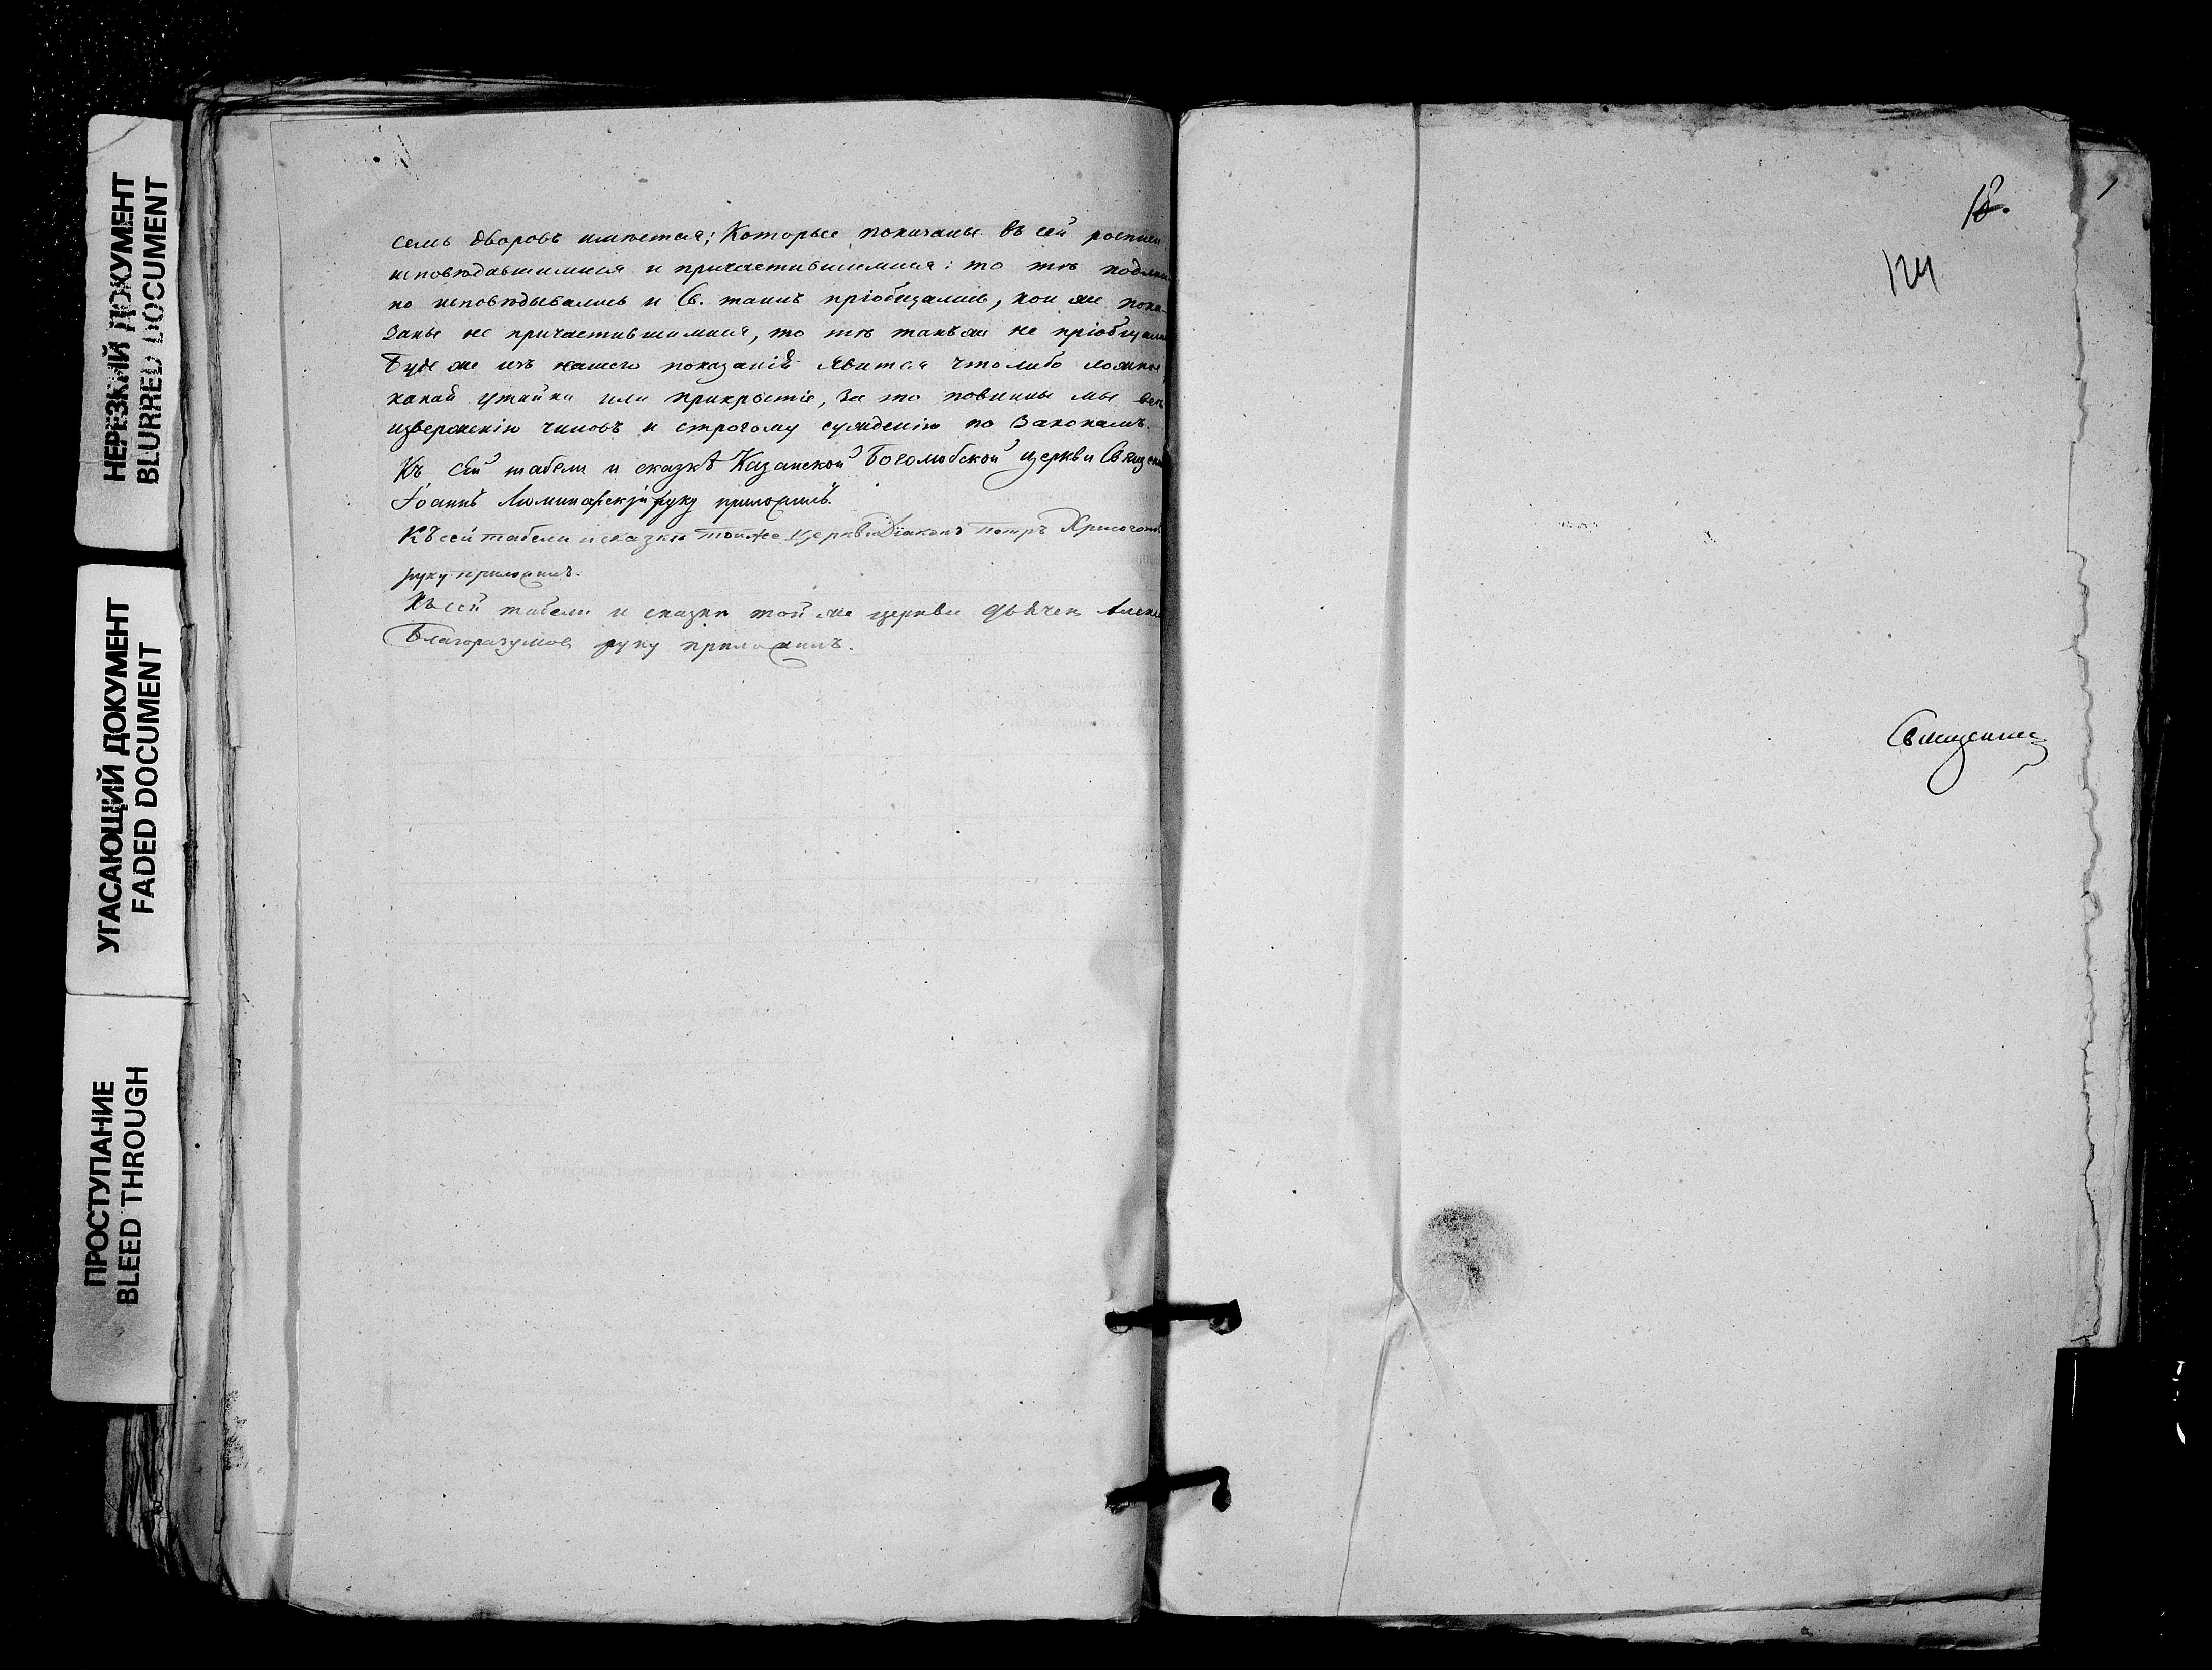 НЕРЕЗКИЙ ДОКУМЕНТ
BLURRED DOCUMENT
УГАСАЮЩИЙ ДОКУМЕНТ
FADED DOCUMENT
ПРОСТУПАНИЕ
BLEED THROUGH
семь дворовъ имѣется; Которые показаны въ сей росписи
исповѣдавшимися и причастившимися: то тѣ подлин-
но исповѣдывались и Св. таинъ пріобщались, кои же пока-
заны не причастившимися, то тѣ такъже не пріобщали
Буде же изъ нашего показанія явится что либо ложное,
какая утайка или прикрытіе, за то повинны мы
изверженію чиновъ и строгому сужденію по Законамъ.
Къ сей табели и сказкѣ Казанской Боголюбской церкви Священ
Іоаннъ Люминарскій руку приложилъ.
Къ сей табели и сказки тойже церкви Діаконъ Петръ
руку приложилъ.
Къ сей табели и сказки той же церкви дьячек Алекс
Благоразумов руку приложилъ.
18.
124
Священник